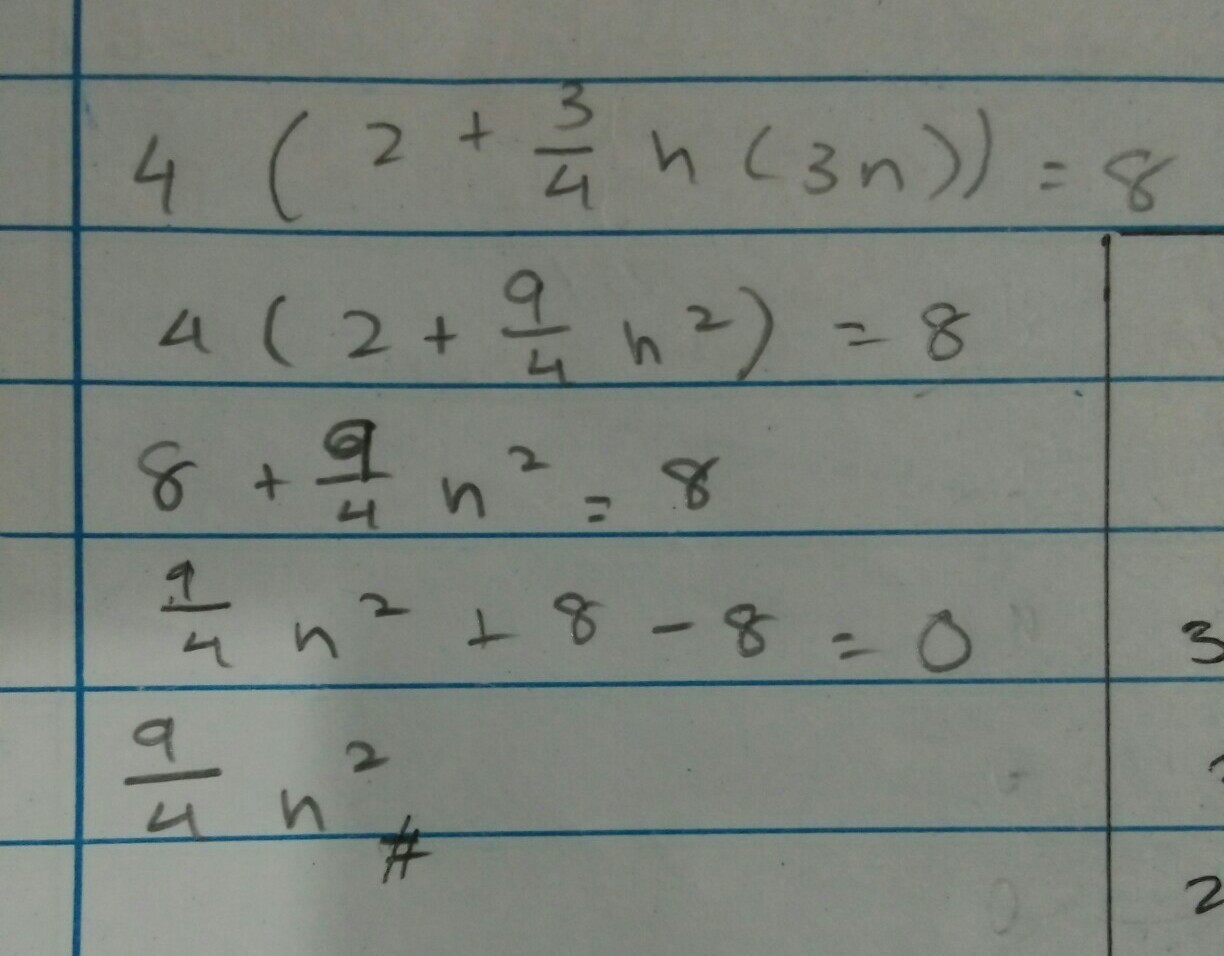 4 ( 2 + 3/4 n (3n)) = 8
4 ( 2 + 9/4 n²) = 8
8 + 9/4 n² = 8
9/4 n² + 8 - 8 = 0
3
9/4 n² #
2